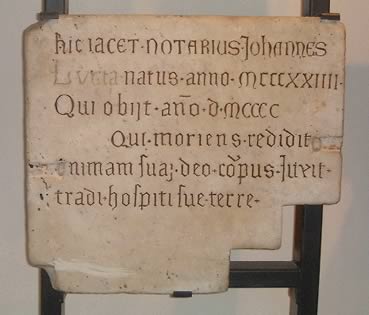 hic iacet · notarius · Johannes
natus · anno · mcccxxiiii ·
Qui obijt · año · d · mcccc
Qui · moriens · redidit
animam suaȝ · deo · cõpus ·
tradi · hospiti sue · terre ·